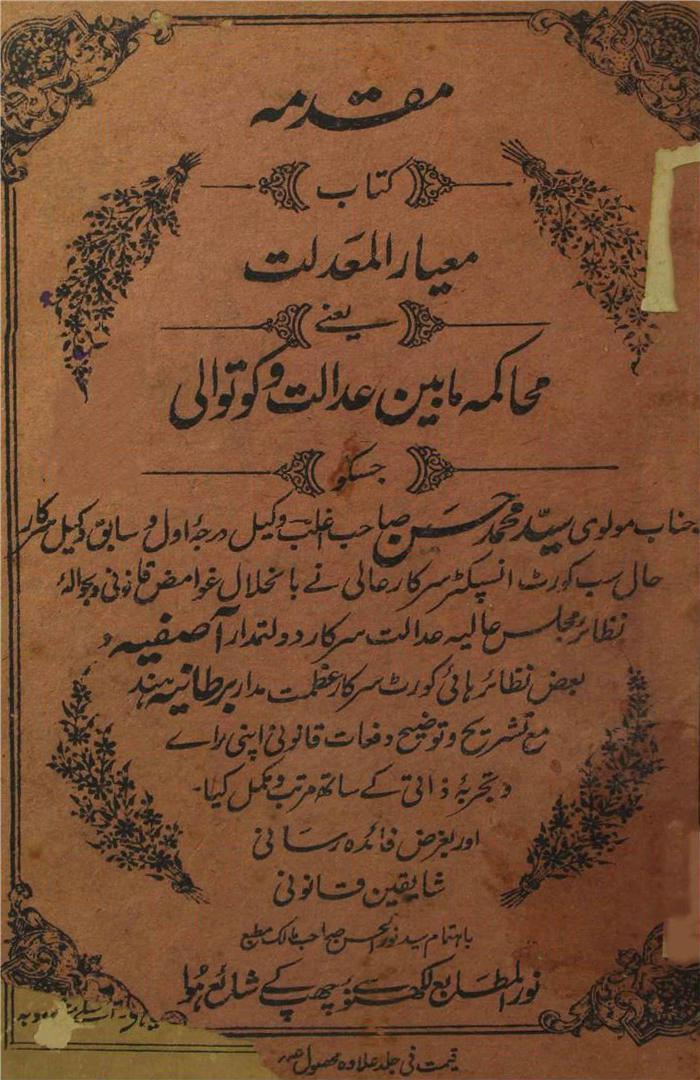 مقدمہ
کتاب
معیار المعَدلت
یعنے
محاکمہ مابین عدالت و کوتوالی
جسکو
جناب مولوی سیّد محمد حسن صاحب اغلب وکیل درجۂ اول و سابق وکیل سرکار
حال سب کورٹ انسپکٹر سرکار عالی نے بانحلال غوامض قانونی و بحوالۂ
نظائر مجلس عالیہ عدالت سرکار دولتمدار آصفیہ و
بعض نظائر ہائی کورٹ سرکار عظمت مدار برطانیہ ہند
مع تشریح و توضیح دفعات قانونی اپنی راے
و تجربۂ ذاتی کے ساتھ مرتب و مکمل کیا۔
اور بغرض فائدہ رسانی
شایقین قانونی
باہتمام سید نور الحسن صاحب مالک مطبع
نور المطابع لکھنؤ سے چھپ کے شائع ہُوا
قیمت فی جلد علاوہ محصول